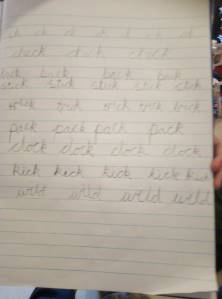 ck ck ck ck ck ck
check check check
back back back back
stick stick stick stick stick
trick trick trick trick trick
pack pack pack pack
clock clock clock clock
kick kick kick kick kick
wild wild wild wild